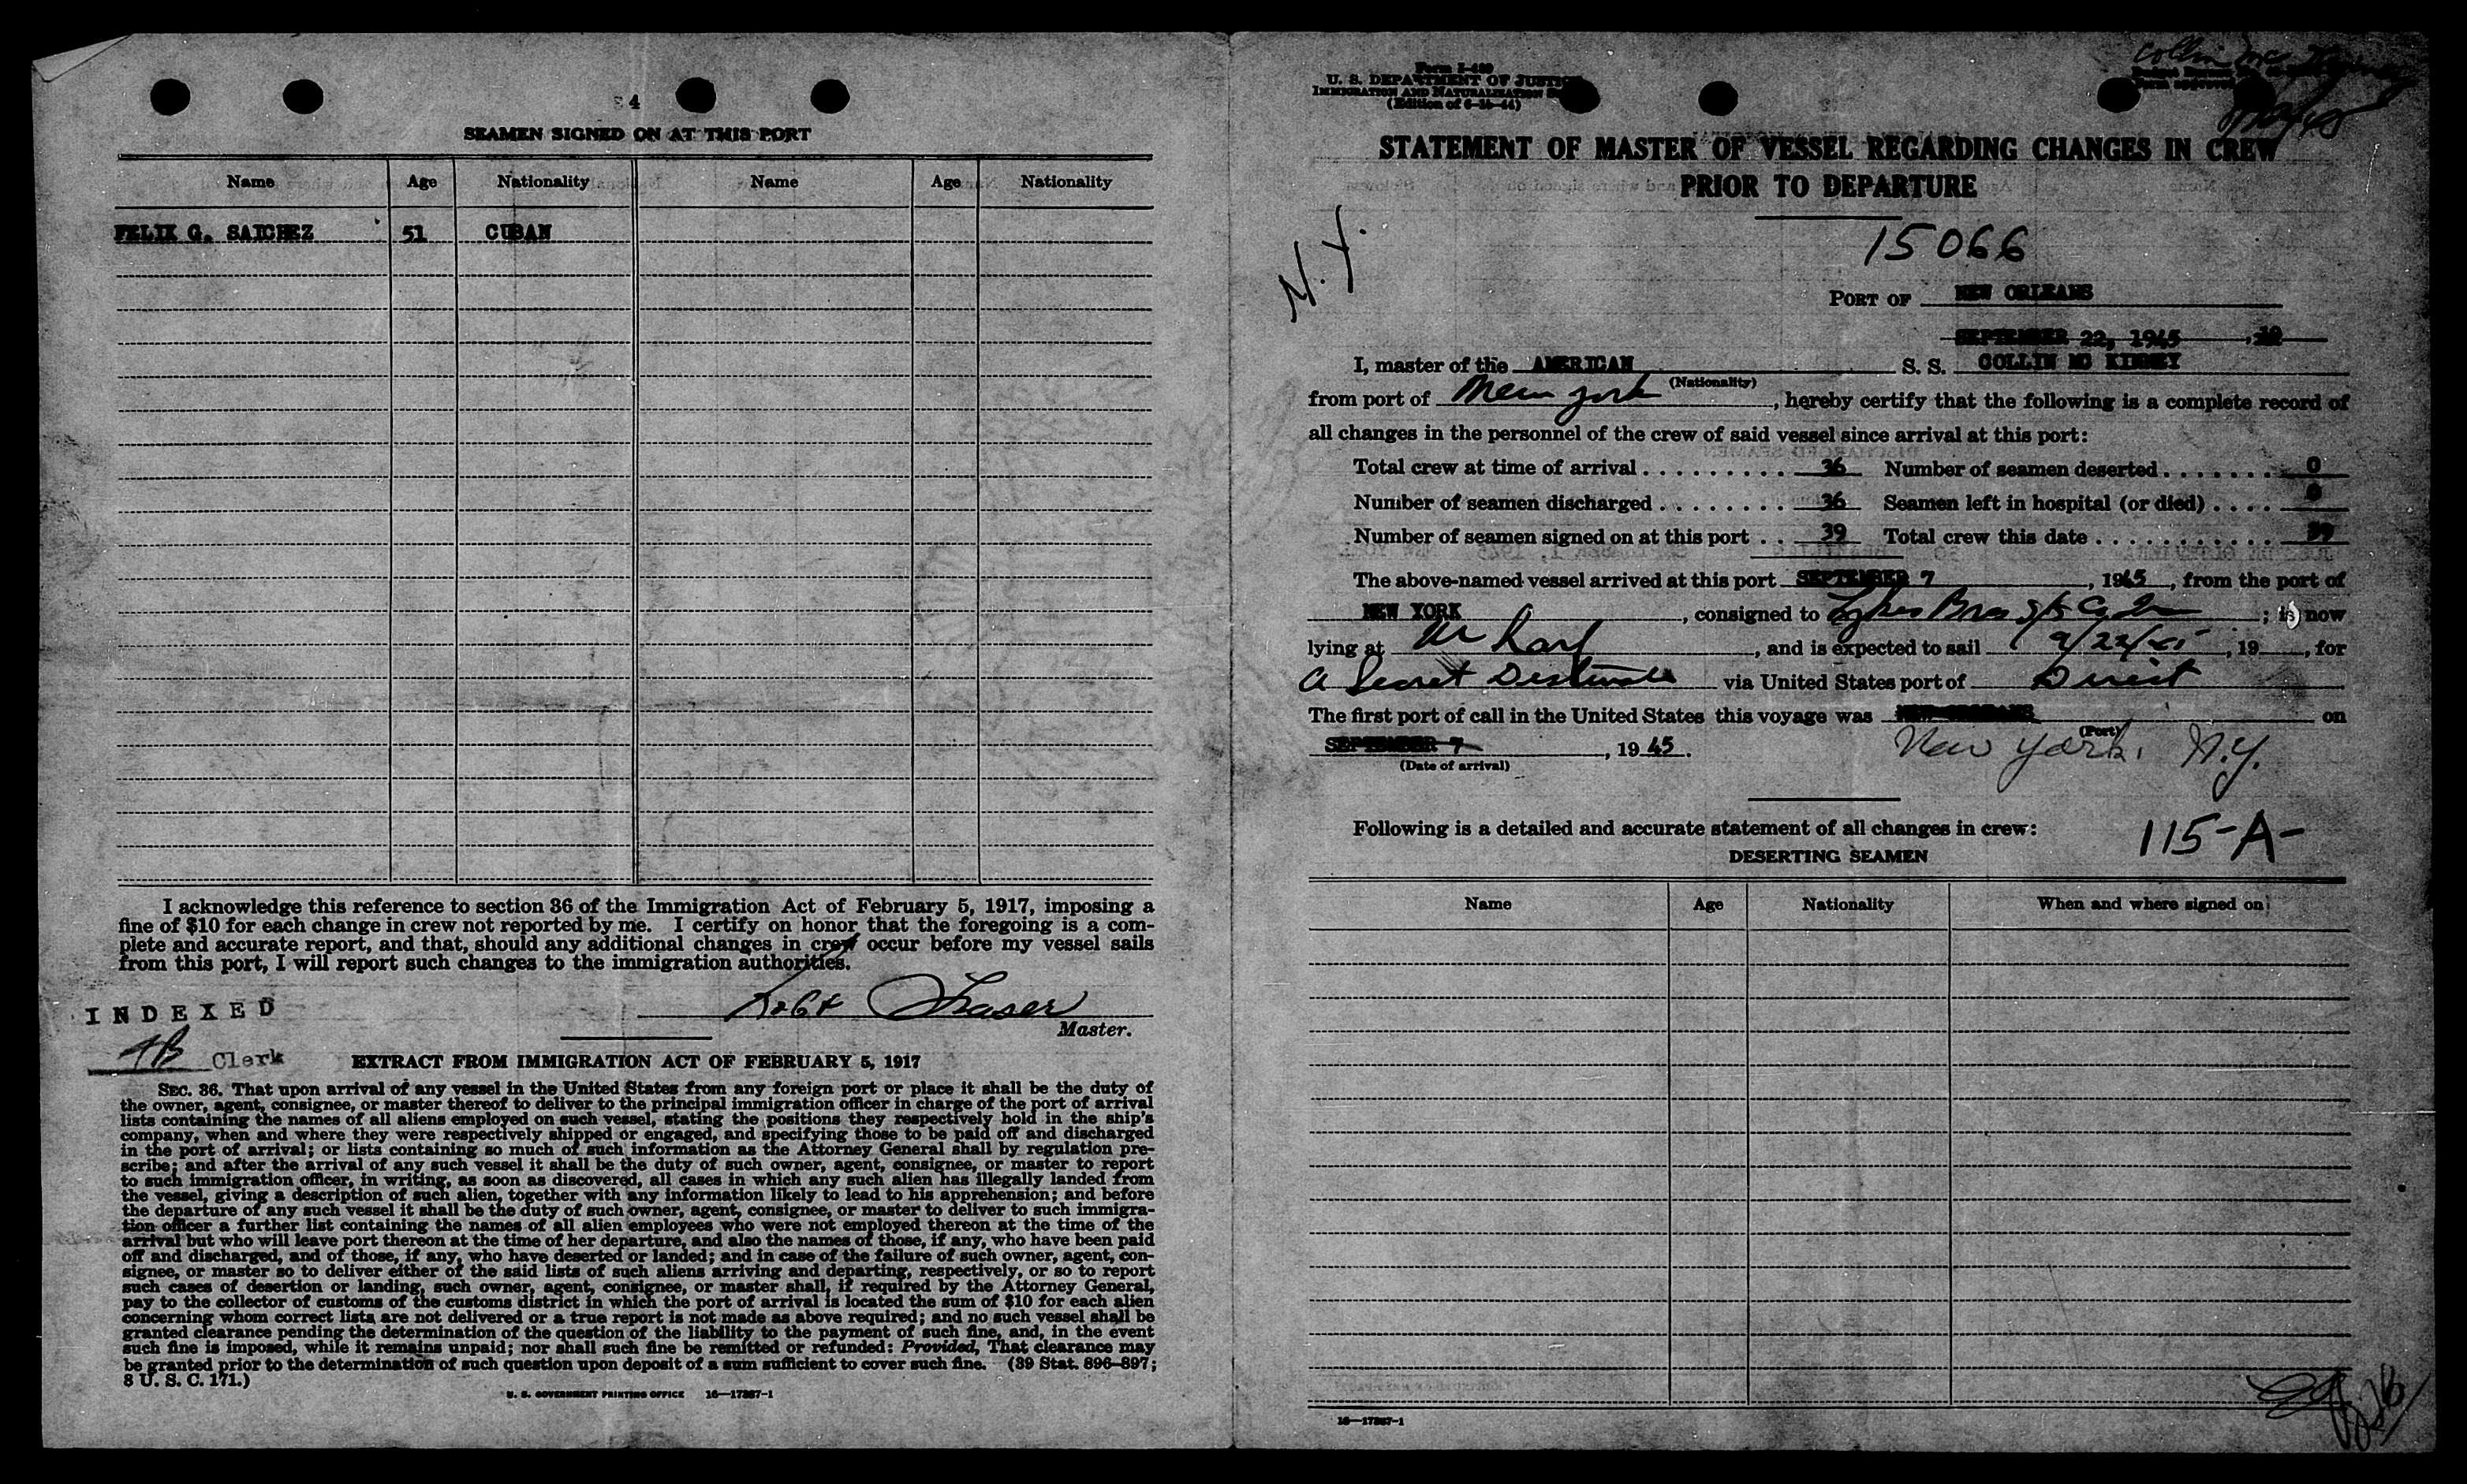 4
SEAMEN SIGNED ON AT THIS PORT
Name Age Nationality Name Age Nationality
FELIX G. SAICHEZ 51 CUBAN
I acknowledge this reference to section 36 of the Immigration Act of February 5, 1917, imposing a
fine of $10 for each change in crew not reported by me. I certify on honor that the foregoing is a com-
plete and accurate report, and that, should any additional changes in crew occur before my vessel sails
from this port, I will report such changes to the immigration authorities.
Robt Fraser
Master.
INDEXED
Clerk
EXTRACT FROM IMMIGRATION ACT OF FEBRUARY 5, 1917
SEC. 36. That upon arrival of any vessel in the United States from any foreign port or place it shall be the duty of
the owner, agent, consignee, or master thereof to deliver to the principal immigration officer in charge of the port of arrival
lists containing the names of all aliens employed on such vessel, stating the positions they respectively hold in the ship's
company, when and where they were respectively shipped or engaged, and specifying those to be paid off and discharged
in the port of arrival; or lists containing so much of such information as the Attorney General shall by regulation pre-
scribe; and after the arrival of any such vessel it shall be the duty of such owner, agent, consignee, or master to report
to such immigration officer, in writing, as soon as discovered, all cases in which any such alien has illegally landed from
the vessel, giving a description of such alien, together with any information likely to lead to his apprehension; and before
the departure of any such vessel it shall be the duty of such owner, agent, consignee, or master to deliver to such immigra-
tion officer a further list containing the names of all alien employees who were not employed thereon at the time of the
arrival but who will leave port thereon at the time of her departure, and also the names of those, if any, who have been paid
off and discharged, and of those, if any, who have deserted or landed; and in case of the failure of such owner, agent, con-
signee, or master so to deliver either of the said lists of such aliens arriving and departing, respectively, or so to report
such cases of desertion or landing, such owner, agent, consignee, or master shall, if required by the Attorney General,
pay to the collector of customs of the customs district in which the port of arrival is located the sum of $10 for each alien
concerning whom correct lists are not delivered or a true report is not made as above required; and no such vessel shall be
granted clearance pending the determination of the question of the liability to the payment of such fine, and, in the event
such fine is imposed, while it remains unpaid; nor shall such fine be remitted or refunded: Provided, That clearance may
be granted prior to the determination of such question upon deposit of a sum sufficient to cover such fine. (39 Stat. 896-897;
8 U. S. C. 171.)
U. S. GOVERNMENT PRINTING OFFICE 16—17387-1
Form I-489
U. S. DEPARTMENT OF JUSTICE
IMMIGRATION AND NATURALIZATION
(Edition of 6-15-44)
Collin Mc Kinney
STATEMENT OF MASTER OF VESSEL REGARDING CHANGES IN CREW
PRIOR TO DEPARTURE
15066
N.Y.
PORT OF NEW ORLEANS
SEPTEMBER 22, 1945, 19
I, master of the AMERICAN S. S. COLLIN MC KINNEY
(Nationality)
from port of New York, hereby certify that the following is a complete record of
all changes in the personnel of the crew of said vessel since arrival at this port:
Total crew at time of arrival 36 Number of seamen deserted 0
Number of seamen discharged 36 Seamen left in hospital (or died) 0
Number of seamen signed on at this port 39 Total crew this date 39
The above-named vessel arrived at this port SEPTEMBER 7, 1945, from the port of
NEW YORK, consigned to Lykes Bros S/S Co; is now
lying at, and is expected to sail 9/22/45, 19, for
A Secret via United States port of Direct
The first port of call in the United States this voyage was NEW ORLEANS on
(Port)
SEPTEMBER 7, 1945. New York, N.Y.
(Date of arrival)
Following is a detailed and accurate statement of all changes in crew: 115-A-
DESERTING SEAMEN
Name Age Nationality When and where signed on
16—17387-1